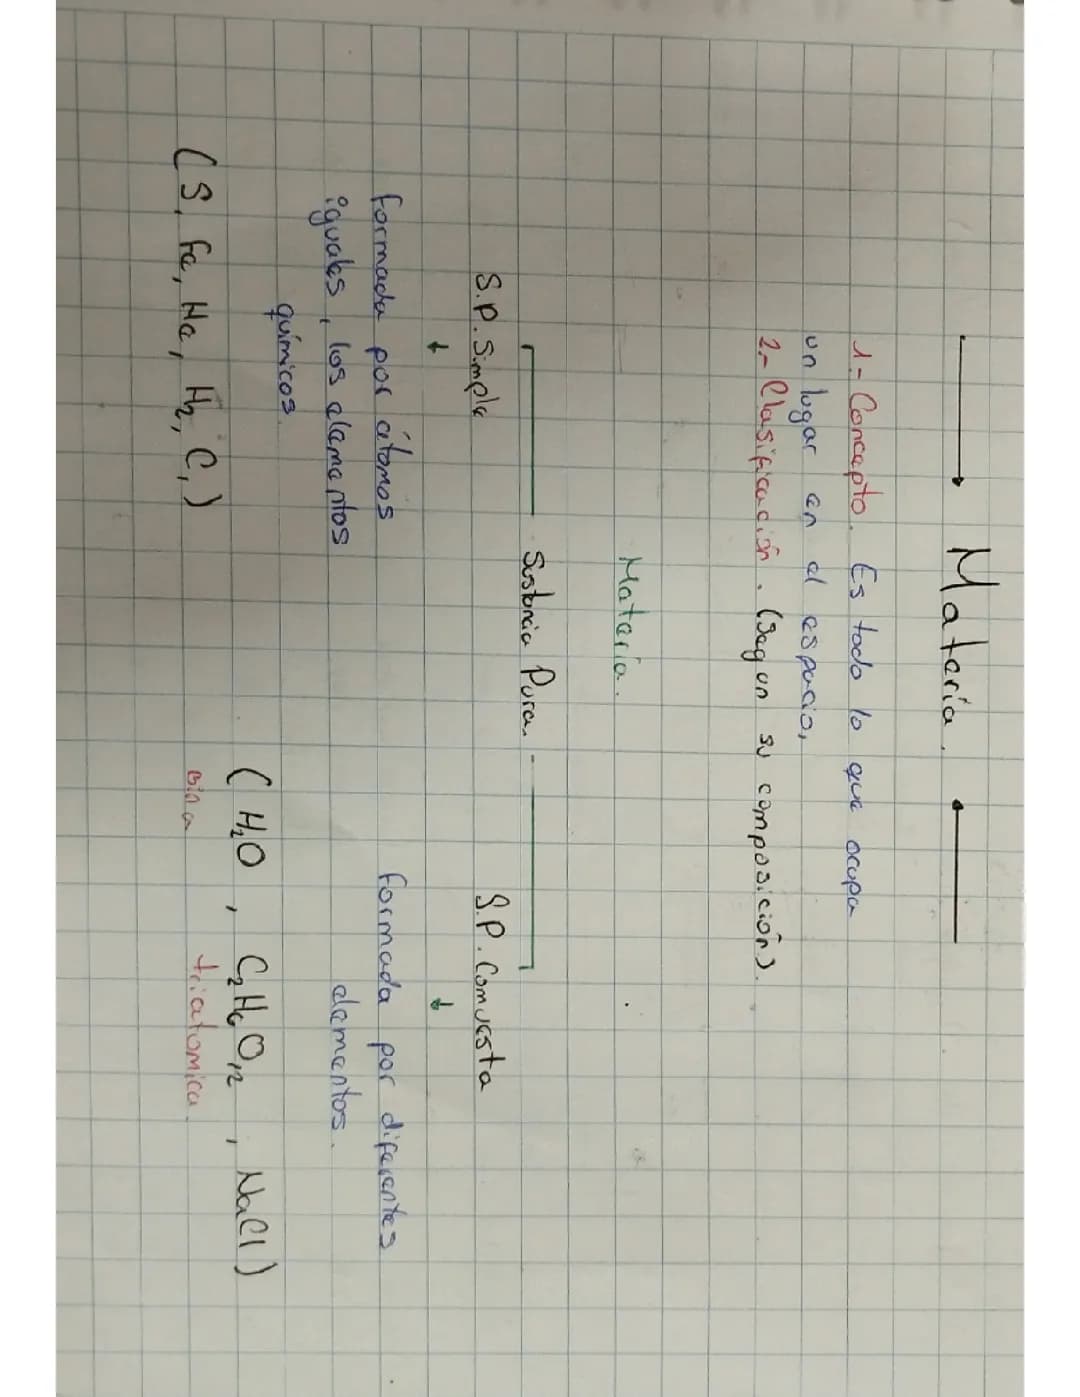 Materia.
1.- Concepto. Es todo lo que ocupa
un lugar en el espacio,
2.- Clasificación. (Según su composición).
Materia.
Sustancia Pura.
S.P. Simple
formada por átomos
iguales, los elementos
químicos.
(S, Fe, He, H₂, C,)
S.P. Comuesta
formada por diferentes
elementos.
(H₂O, C₂H₆O₁₂, NaCl)
Bina triatomica.